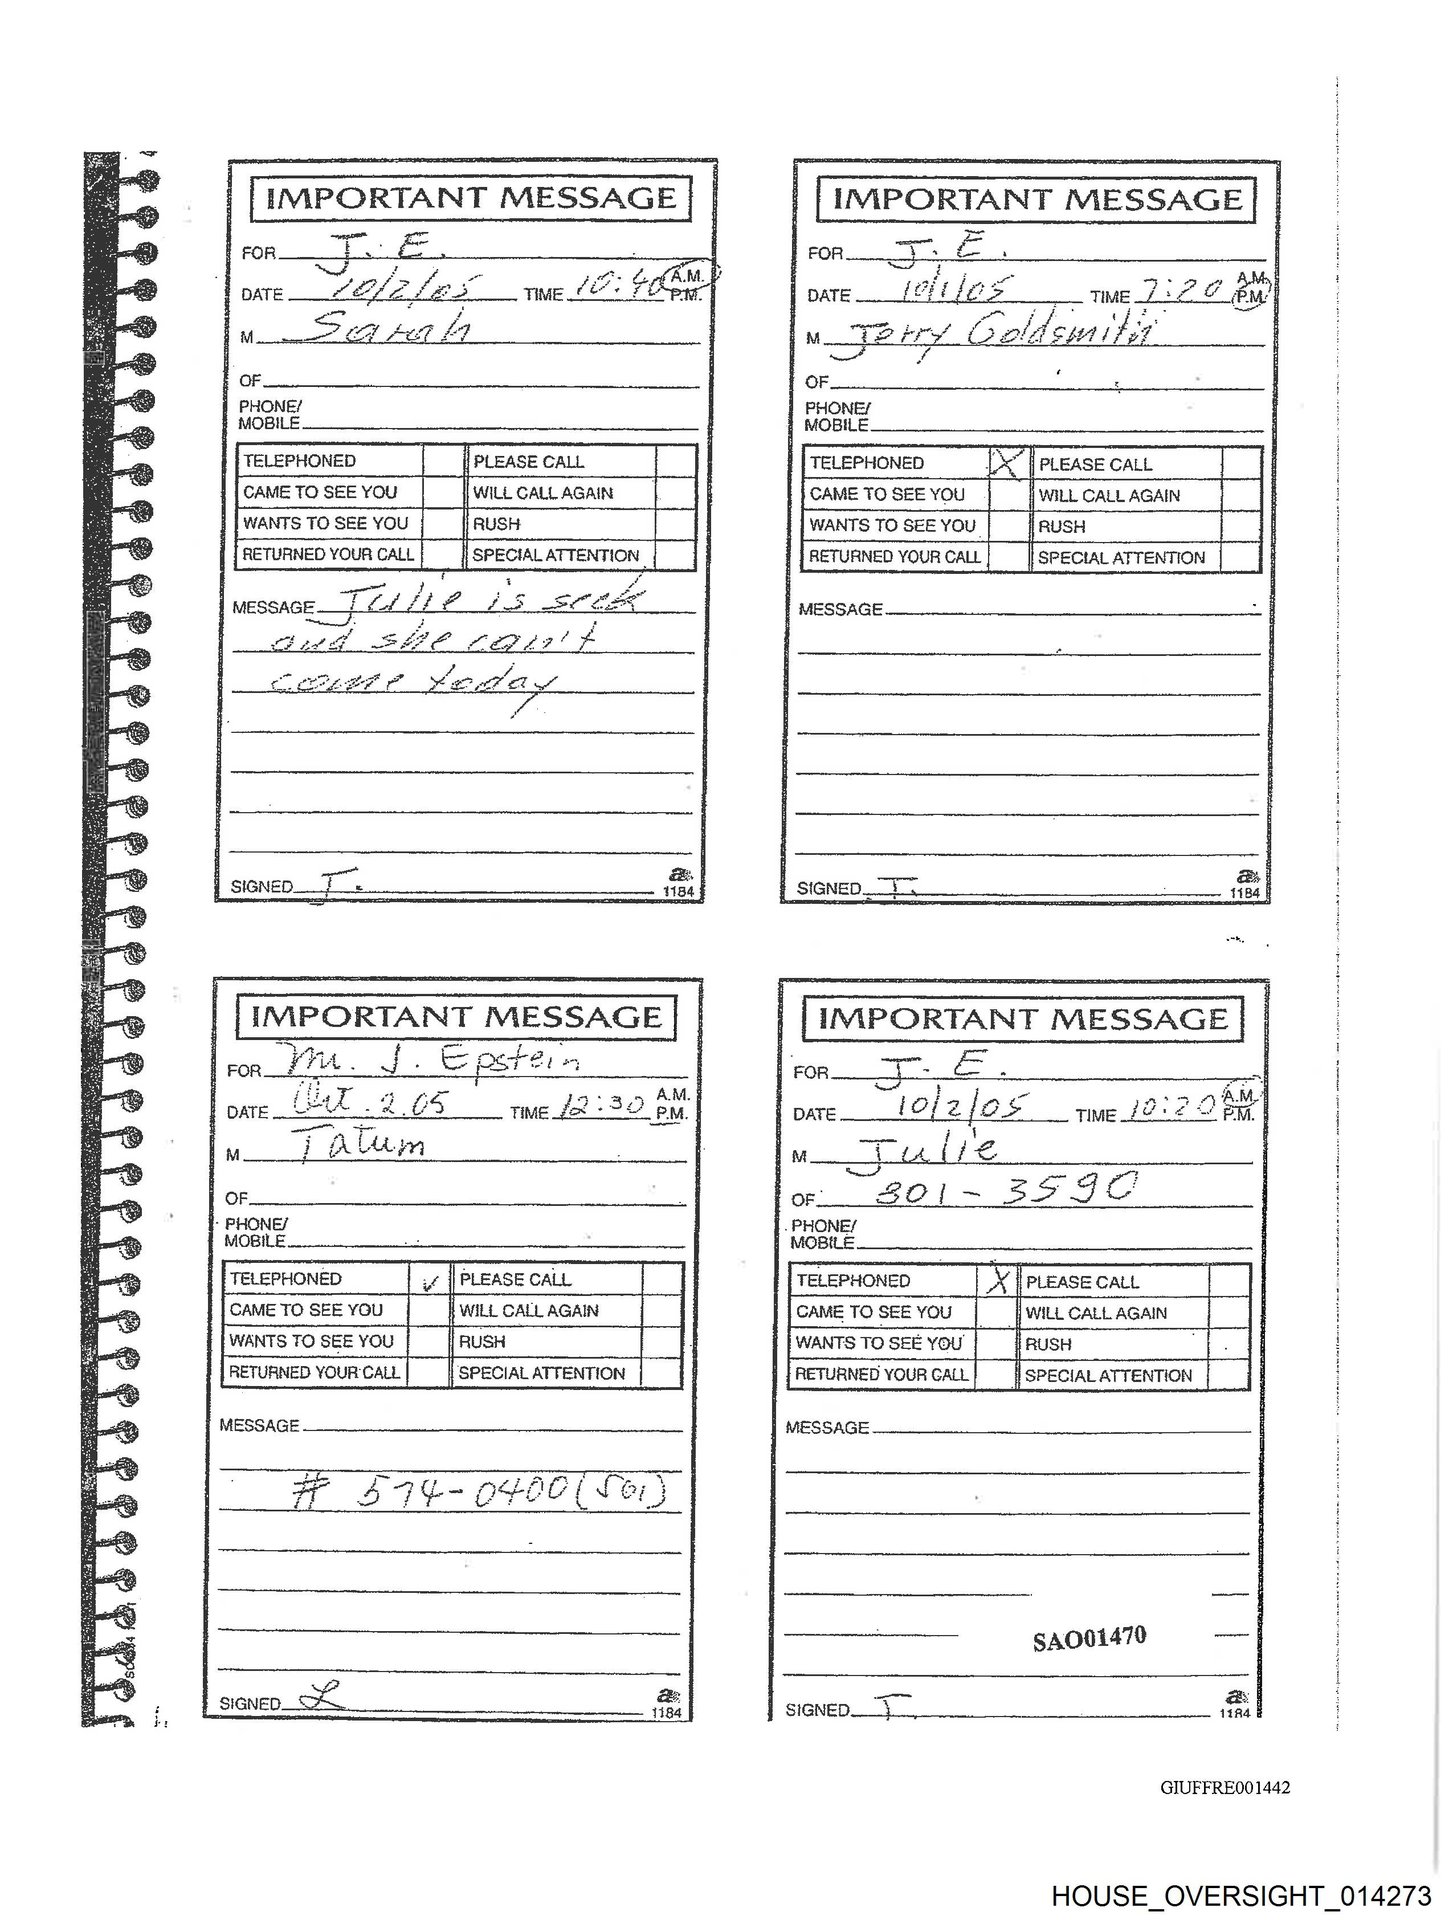 IMPORTANT MESSAGE
FOR J. E.
DATE 10/2/05 TIME 10:40 A.M. P.M.
M Sarah
OF
PHONE/
MOBILE
TELEPHONED PLEASE CALL
CAME TO SEE YOU WILL CALL AGAIN
WANTS TO SEE YOU RUSH
RETURNED YOUR CALL SPECIAL ATTENTION
MESSAGE Julie is seek
and she can't
come today
SIGNED J.
1184
IMPORTANT MESSAGE
FOR J. E.
DATE 10/1/05 TIME 7:20 A.M. P.M.
M Jerry Goldsmith
OF
PHONE/
MOBILE
TELEPHONED X PLEASE CALL
CAME TO SEE YOU WILL CALL AGAIN
WANTS TO SEE YOU RUSH
RETURNED YOUR CALL SPECIAL ATTENTION
MESSAGE
SIGNED J.
1184
IMPORTANT MESSAGE
FOR Mr. J. Epstein
DATE Oct. 2.05 TIME 12:30 A.M. P.M.
M Tatum
OF
PHONE/
MOBILE
TELEPHONED ✓ PLEASE CALL
CAME TO SEE YOU WILL CALL AGAIN
WANTS TO SEE YOU RUSH
RETURNED YOUR CALL SPECIAL ATTENTION
MESSAGE
# 574-0400 (561)
SIGNED L
1184
IMPORTANT MESSAGE
FOR J. E.
DATE 10/2/05 TIME 10:20 A.M. P.M.
M Julie
OF 301-3590
PHONE/
MOBILE
TELEPHONED X PLEASE CALL
CAME TO SEE YOU WILL CALL AGAIN
WANTS TO SEE YOU RUSH
RETURNED YOUR CALL SPECIAL ATTENTION
MESSAGE
SAO01470
SIGNED J.
1184
GIUFFRE001442
HOUSE_OVERSIGHT_014273